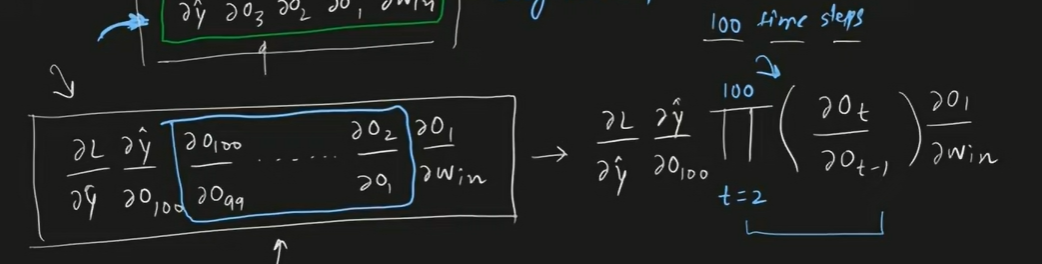 ∂ŷ ∂O₃ ∂O₂ ∂O₁ ∂Win
100 time steps
∂L/∂ŷ ∂ŷ/∂O₁₀₀ ∂O₁₀₀/∂O₉₉ ...... ∂O₂/∂O₁ ∂O₁/∂Win → ∂L/∂ŷ ∂ŷ/∂O₁₀₀ 100 ∏ t=2 (∂Oₜ/∂Oₜ₋₁) ∂O₁/∂Win